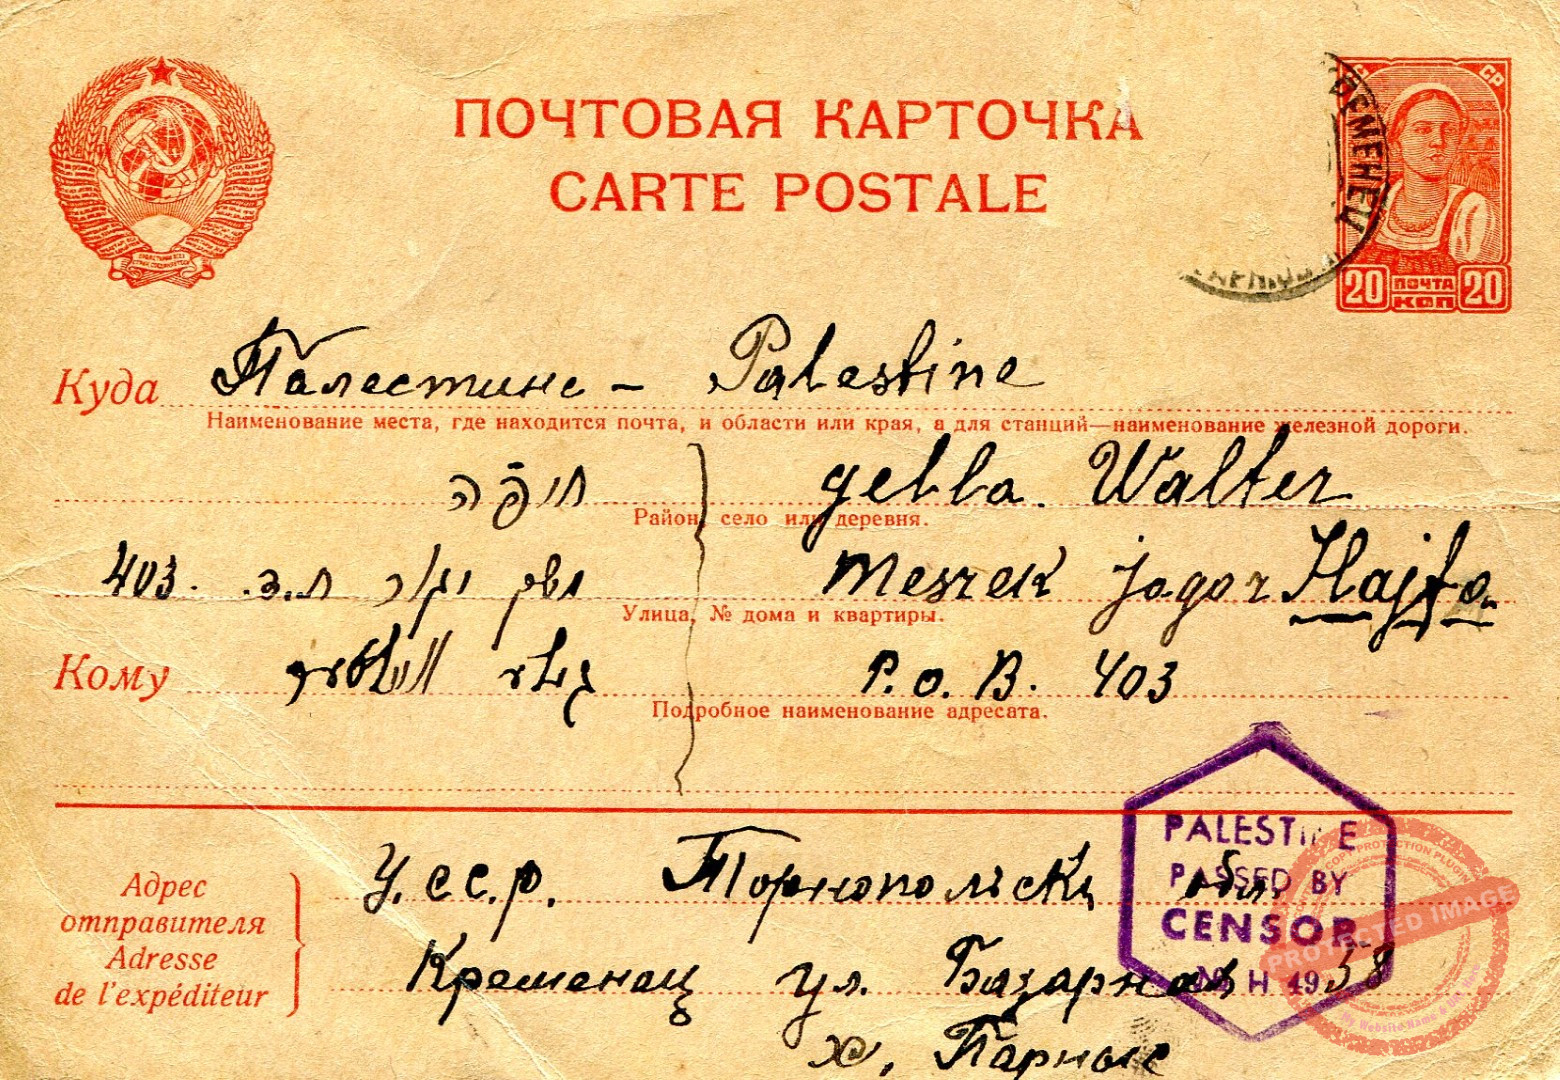 ПОЧТОВАЯ КАРТОЧКА
CARTE POSTALE
20 ПОЧТА КОП 20
Куда Палестине - Palestine
Наименование места, где находится почта, и области или края, а для станций—наименование железной дороги.
חיפה
gella. Walter
Район, село или деревня.
משק יגור ת.ד. 403.
Meszek Jagor Hajfa
Улица, № дома и квартиры.
Кому
P. o. B. 403
Подробное наименование адресата.
PALESTINE
PASSED BY
CENSOR
Адрес отправителя
Adresse de l'expéditeur
У.С.С.Р. Торнопольск обл.
Кременец ул. Базарная 58
PROTECTED IMAGE
My Website Name &